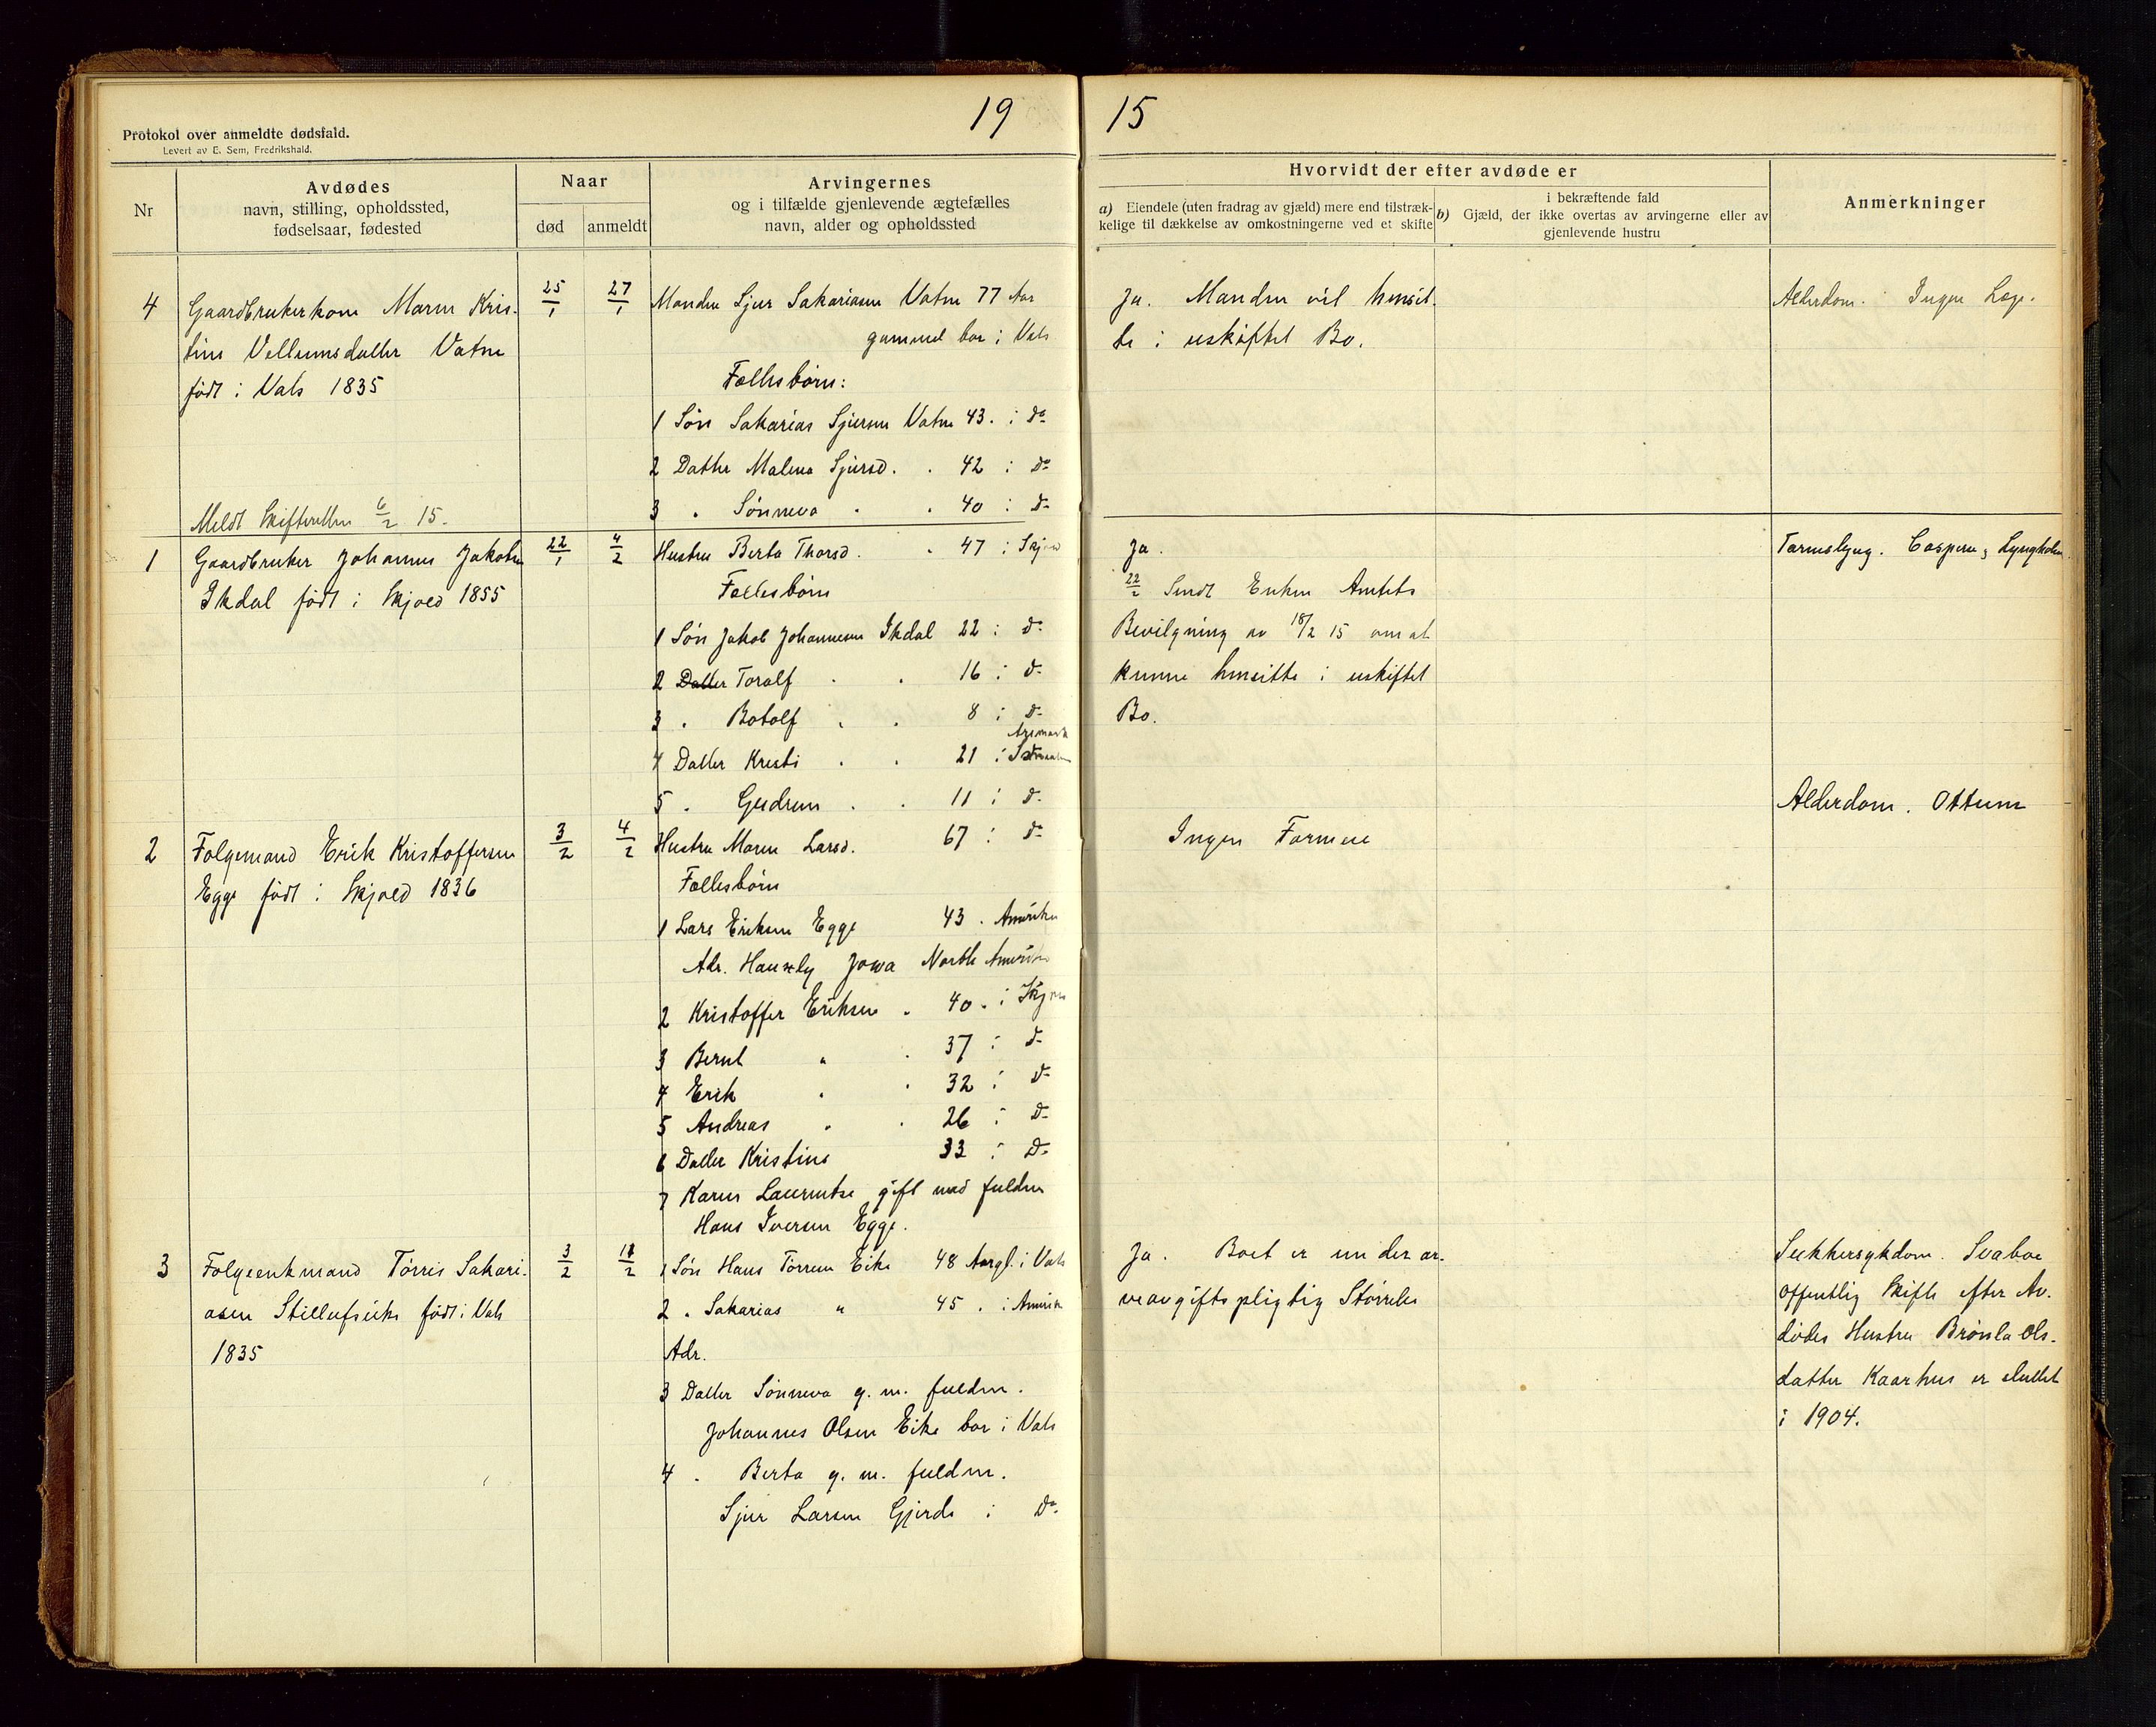 19 15
Protokol over anmeldte dødsfald.
Levert av E. Sem, Fredrikshald.
Nr
Avdødes
navn, stilling, opholdssted,
fødselsaar, fødested
Naar
død anmeldt
Arvingernes
og i tilfælde gjenlevende ægtefælles
navn, alder og opholdssted
Hvorvidt der efter avdøde er
a) Eiendele (uten fradrag av gjæld) mere end tilstræk-
kelige til dækkelse av omkostningerne ved et skifte
b) i bekræftende fald
Gjæld, der ikke overtas av arvingerne eller av
gjenlevende hustru
Anmerkninger
4 Gaardbrukerkone Maren Kris-
tine Vellumsdatter Vatne
født i Vats 1835
Meldt Skifteretten 6/2 15.
25/1 27/1
Manden Sjur Sakariasen Vatne 77 Aar
gammel bor i Vats
Fællesbørn:
1 Søn Sakarias Sjursen Vatne 43. i do
2 Datter Malena Sjursd. . 42 i do
3 . Sønneva . . 40 i do
Ja. Manden vil hensit-
te i uskiftet Bo.
Alderdom. Ingen Læge.
1 Gaardbruker Johannes Jakobsen
Ikdal født i Skjold 1855
22/1 4/2
Hustru Berta Thorsd. . 47 i Skjold
Fællesbørn
1 Søn Jakob Johannesen Ikdal 22 i do
2 Datter Toralf . . 16 i do
3 . Botolf . . 8 i do
4 Datter Kresti . . 21 i
5 . Gudrun . . 11 i do
Ja.
22/2 Sendt Enken Amtets
Bevilgning av 18/2 15 om at
kunne hensitte i uskiftet
Bo.
Tarmslyng. Caspersen, Lyngholm
2 Folgemand Erik Kristoffersen
Egge født i Skjold 1836
3/2 4/2
Hustru Maren Larsd. 67 i do
Fællesbørn
1 Lars Eriksen Egge 43 . Amerika
Adr. Jowa North Amerika
2 Kristoffer Eriksen . 40 . i Skjold
3 Bernt " . 37 i do
4 Erik . . 32 i do
5 Andreas . . 26 i do
6 Datter Kristine 33 i do
7 Karen Laurentse gift med fuldm
Hans Iversen Egge.
Ingen Formue
Alderdom. Ottum
3 Folgeenkmand Tørris Sakari-
asen født i Vats
1835
3/2 11/2
1 Søn Hans Tørresen Eike 48 Aar gl. i Vats
2 . Sakarias " 45 . i Amerika
Adr.
3 Datter Sønneva g. m. fuldm.
Johannes Olsen Eike bor i Vats
4 . Berta g. m. fuldm.
Sjur Larsen Gjerde i do
Ja. Boet er under ar-
veavgiftspligtig Størrelse
Sukkersykdom. Svaboe
offentlig Skifte efter Av-
dødes Hustru Brønla Ols-
datter Kaarhus er sluttet
i 1904.